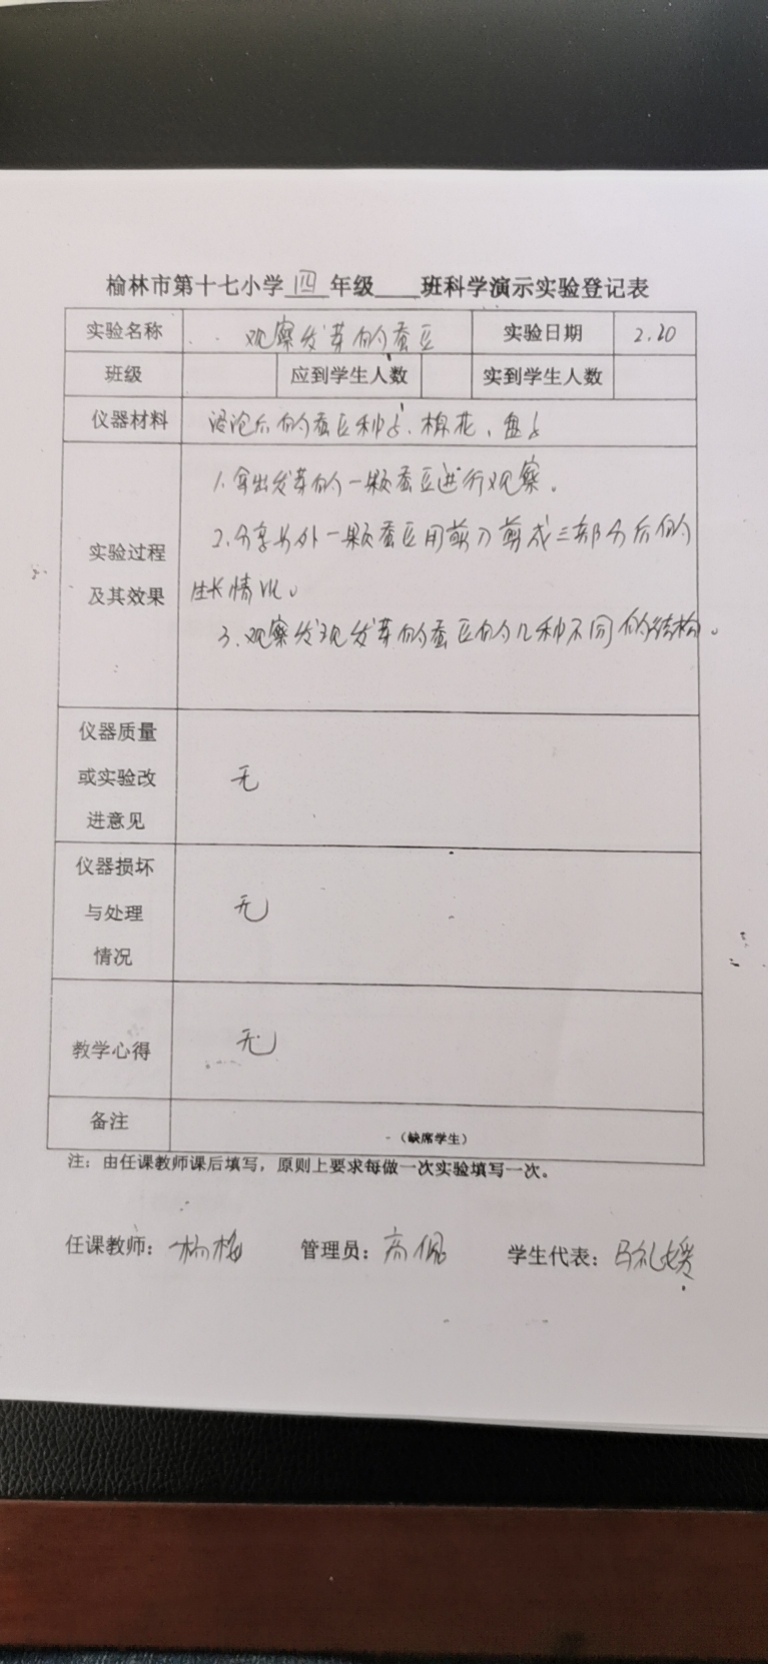 榆林市第十七小学 四 年级____班科学演示实验登记表
实验名称 观察发芽的蚕豆 实验日期 2.20
班级 应到学生人数 实到学生人数
仪器材料 后的蚕豆种子、棉花、盘子
1.拿出发芽的一颗蚕豆进行观察。
2.分享另外一颗蚕豆用剪刀剪成三部分后的
实验过程
及其效果
生长情况。
3.观察发现发芽的蚕豆的几种不同的结构。
仪器质量
或实验改
进意见
无
仪器损坏
与处理
情况
无
教学心得 无
备注 (缺席学生)
注：由任课教师课后填写，原则上要求每做一次实验填写一次。
任课教师：杨梅 管理员：高佩 学生代表：马礼媛